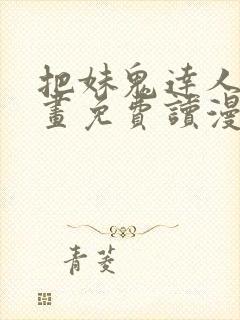 把妹鬼達人
畫免費讀漫
青菱